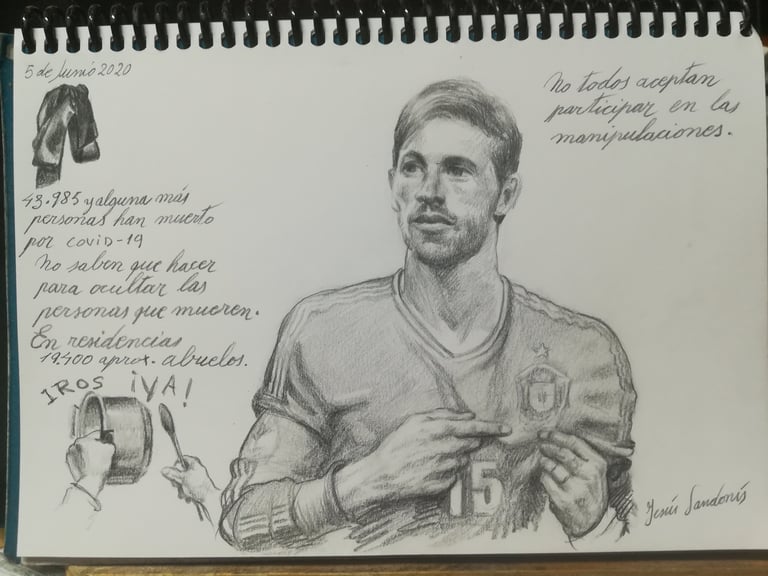 5 de Junio 2020
43.985 y alguna más
personas han muerto
por COVID-19
No saben que hacer
para ocultar las
personas que mueren.
En residencias
19.400 aprox. abuelos.
IROS ¡YA!
No todos aceptan
participar en las
manipulaciones.
15
Jesús Sandonís